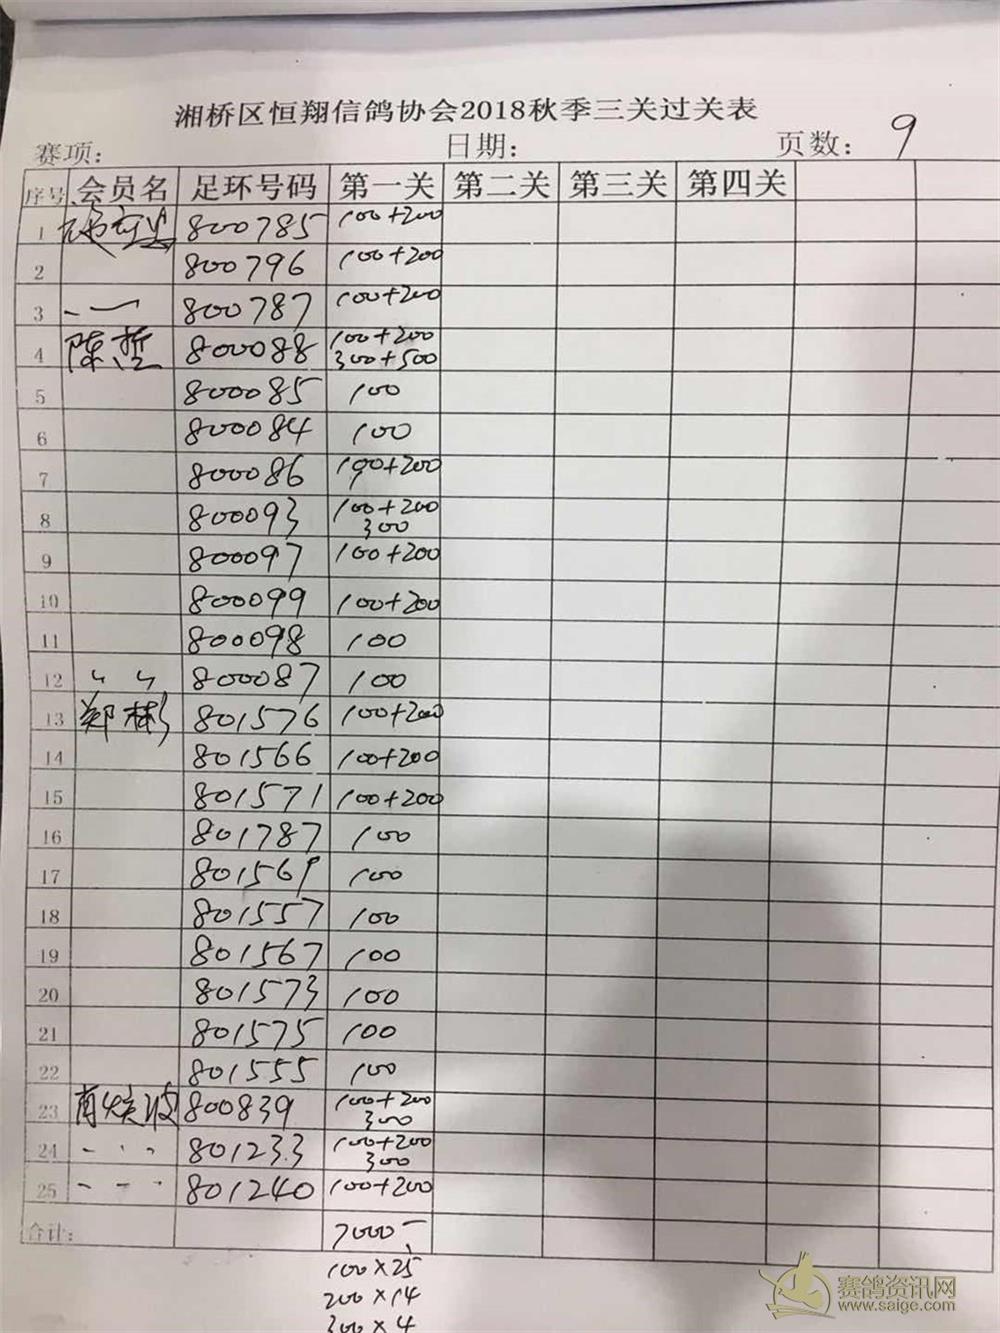 湘桥区恒翔信鸽协会2018秋季三关过关表
赛项: 日期: 页数: 9
序号 会员名 足环号码 第一关 第二关 第三关 第四关
1 800785 100+200
2 800796 100+200
3 〃 800787 100+200
4 陈哲 800088 100+200
300+500
5 800085 100
6 800084 100
7 800086 100+200
8 800093 100+200
300
9 800097 100+200
10 800099 100+200
11 800098 100
12 〃 〃 800087 100
13 郑彬 801576 100+200
14 801566 100+200
15 801571 100+200
16 801787 100
17 801569 100
18 801557 100
19 801567 100
20 801573 100
21 801575 100
22 801555 100
23 800839 100+200
300
24 801233 100+200
300
25 801240 100+200
合计: 7000
100×25
200×14
300×4
赛鸽资讯网
www.saige.com